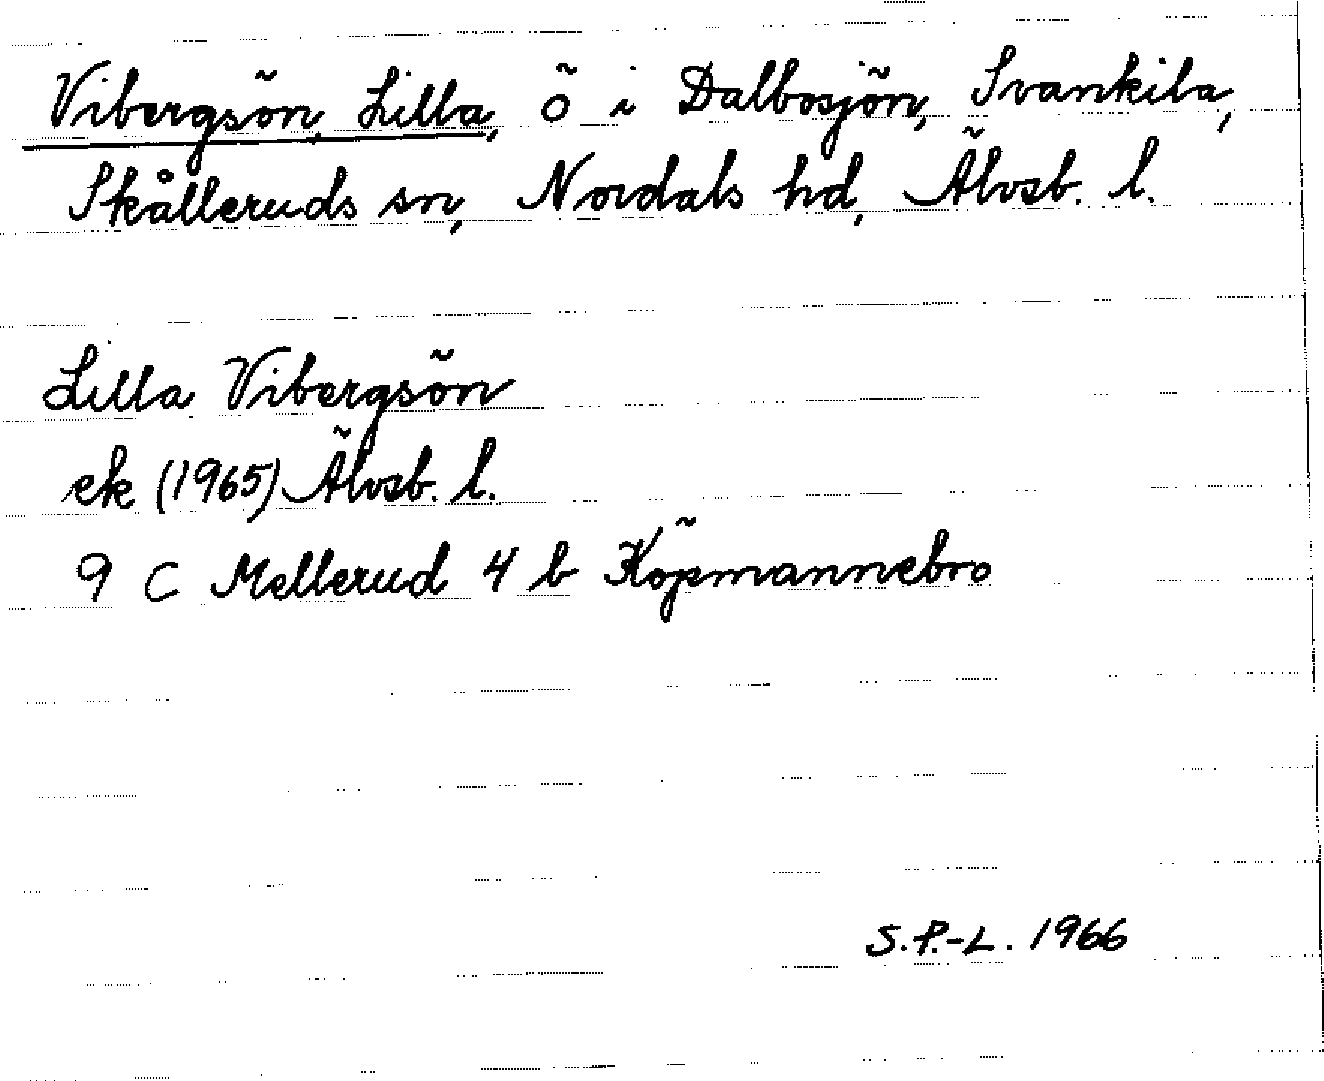 Vibergsön, Lilla, ö i Dalbosjön, Svankila,
Skålleruds sn, Nordals hd, Älvsb. l.
Lilla Vibergsön
ek (1965) Älvsb. l.
9 C Mellerud 4 b Köpmannebro
S.P.-L. 1966